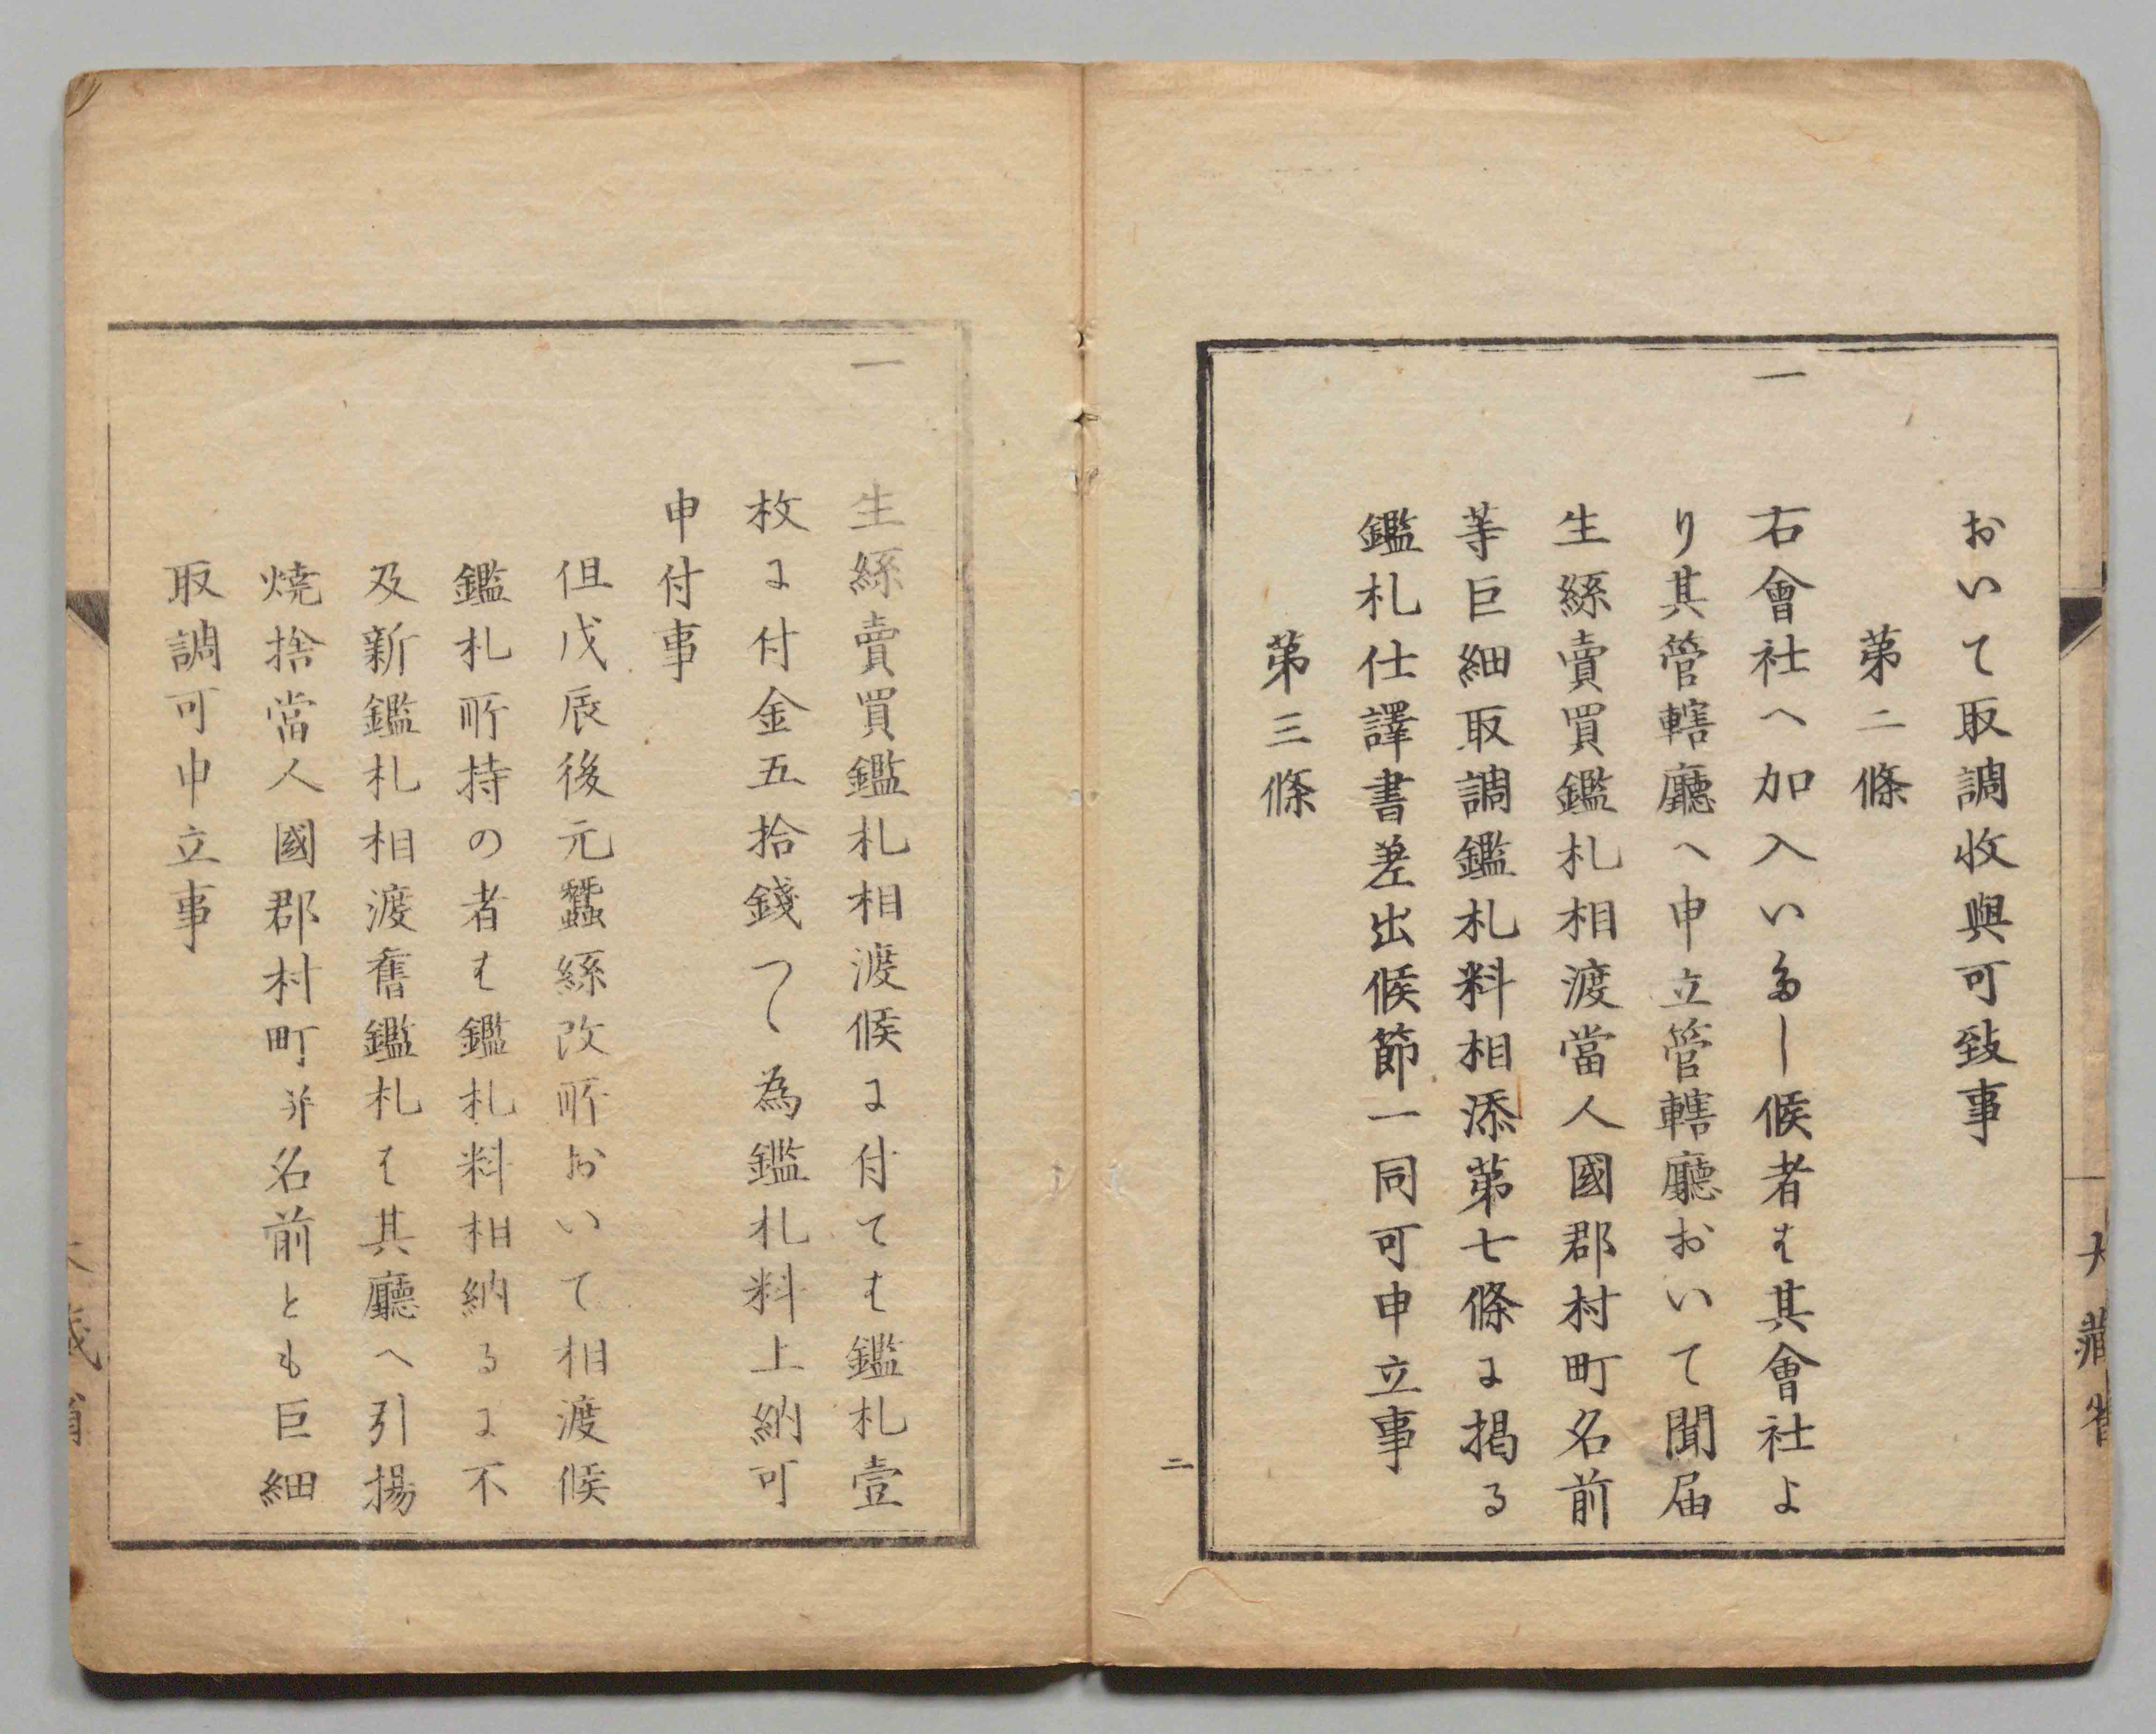 おいて取調收與可致事
第二條
一 右會社へ加入いたし候者は其會社よ
り其管轄廳へ申立管轄廳おいて聞届
生絲賣買鑑札相渡當人國郡村町名前
等巨細取調鑑札料相添第七條に掲る
鑑札仕譯書差出候節一同可申立事
第三條
二
大藏省
一 生絲賣買鑑札相渡候に付ては鑑札壹
枚に付金五拾錢つゝ為鑑札料上納可
申付事
但戊辰後元蠶絲改所おいて相渡候
鑑札所持の者は鑑札料相納るに不
及新鑑札相渡舊鑑札は其廳へ引揚
燒捨當人國郡村町并名前とも巨細
取調可申立事
大藏省